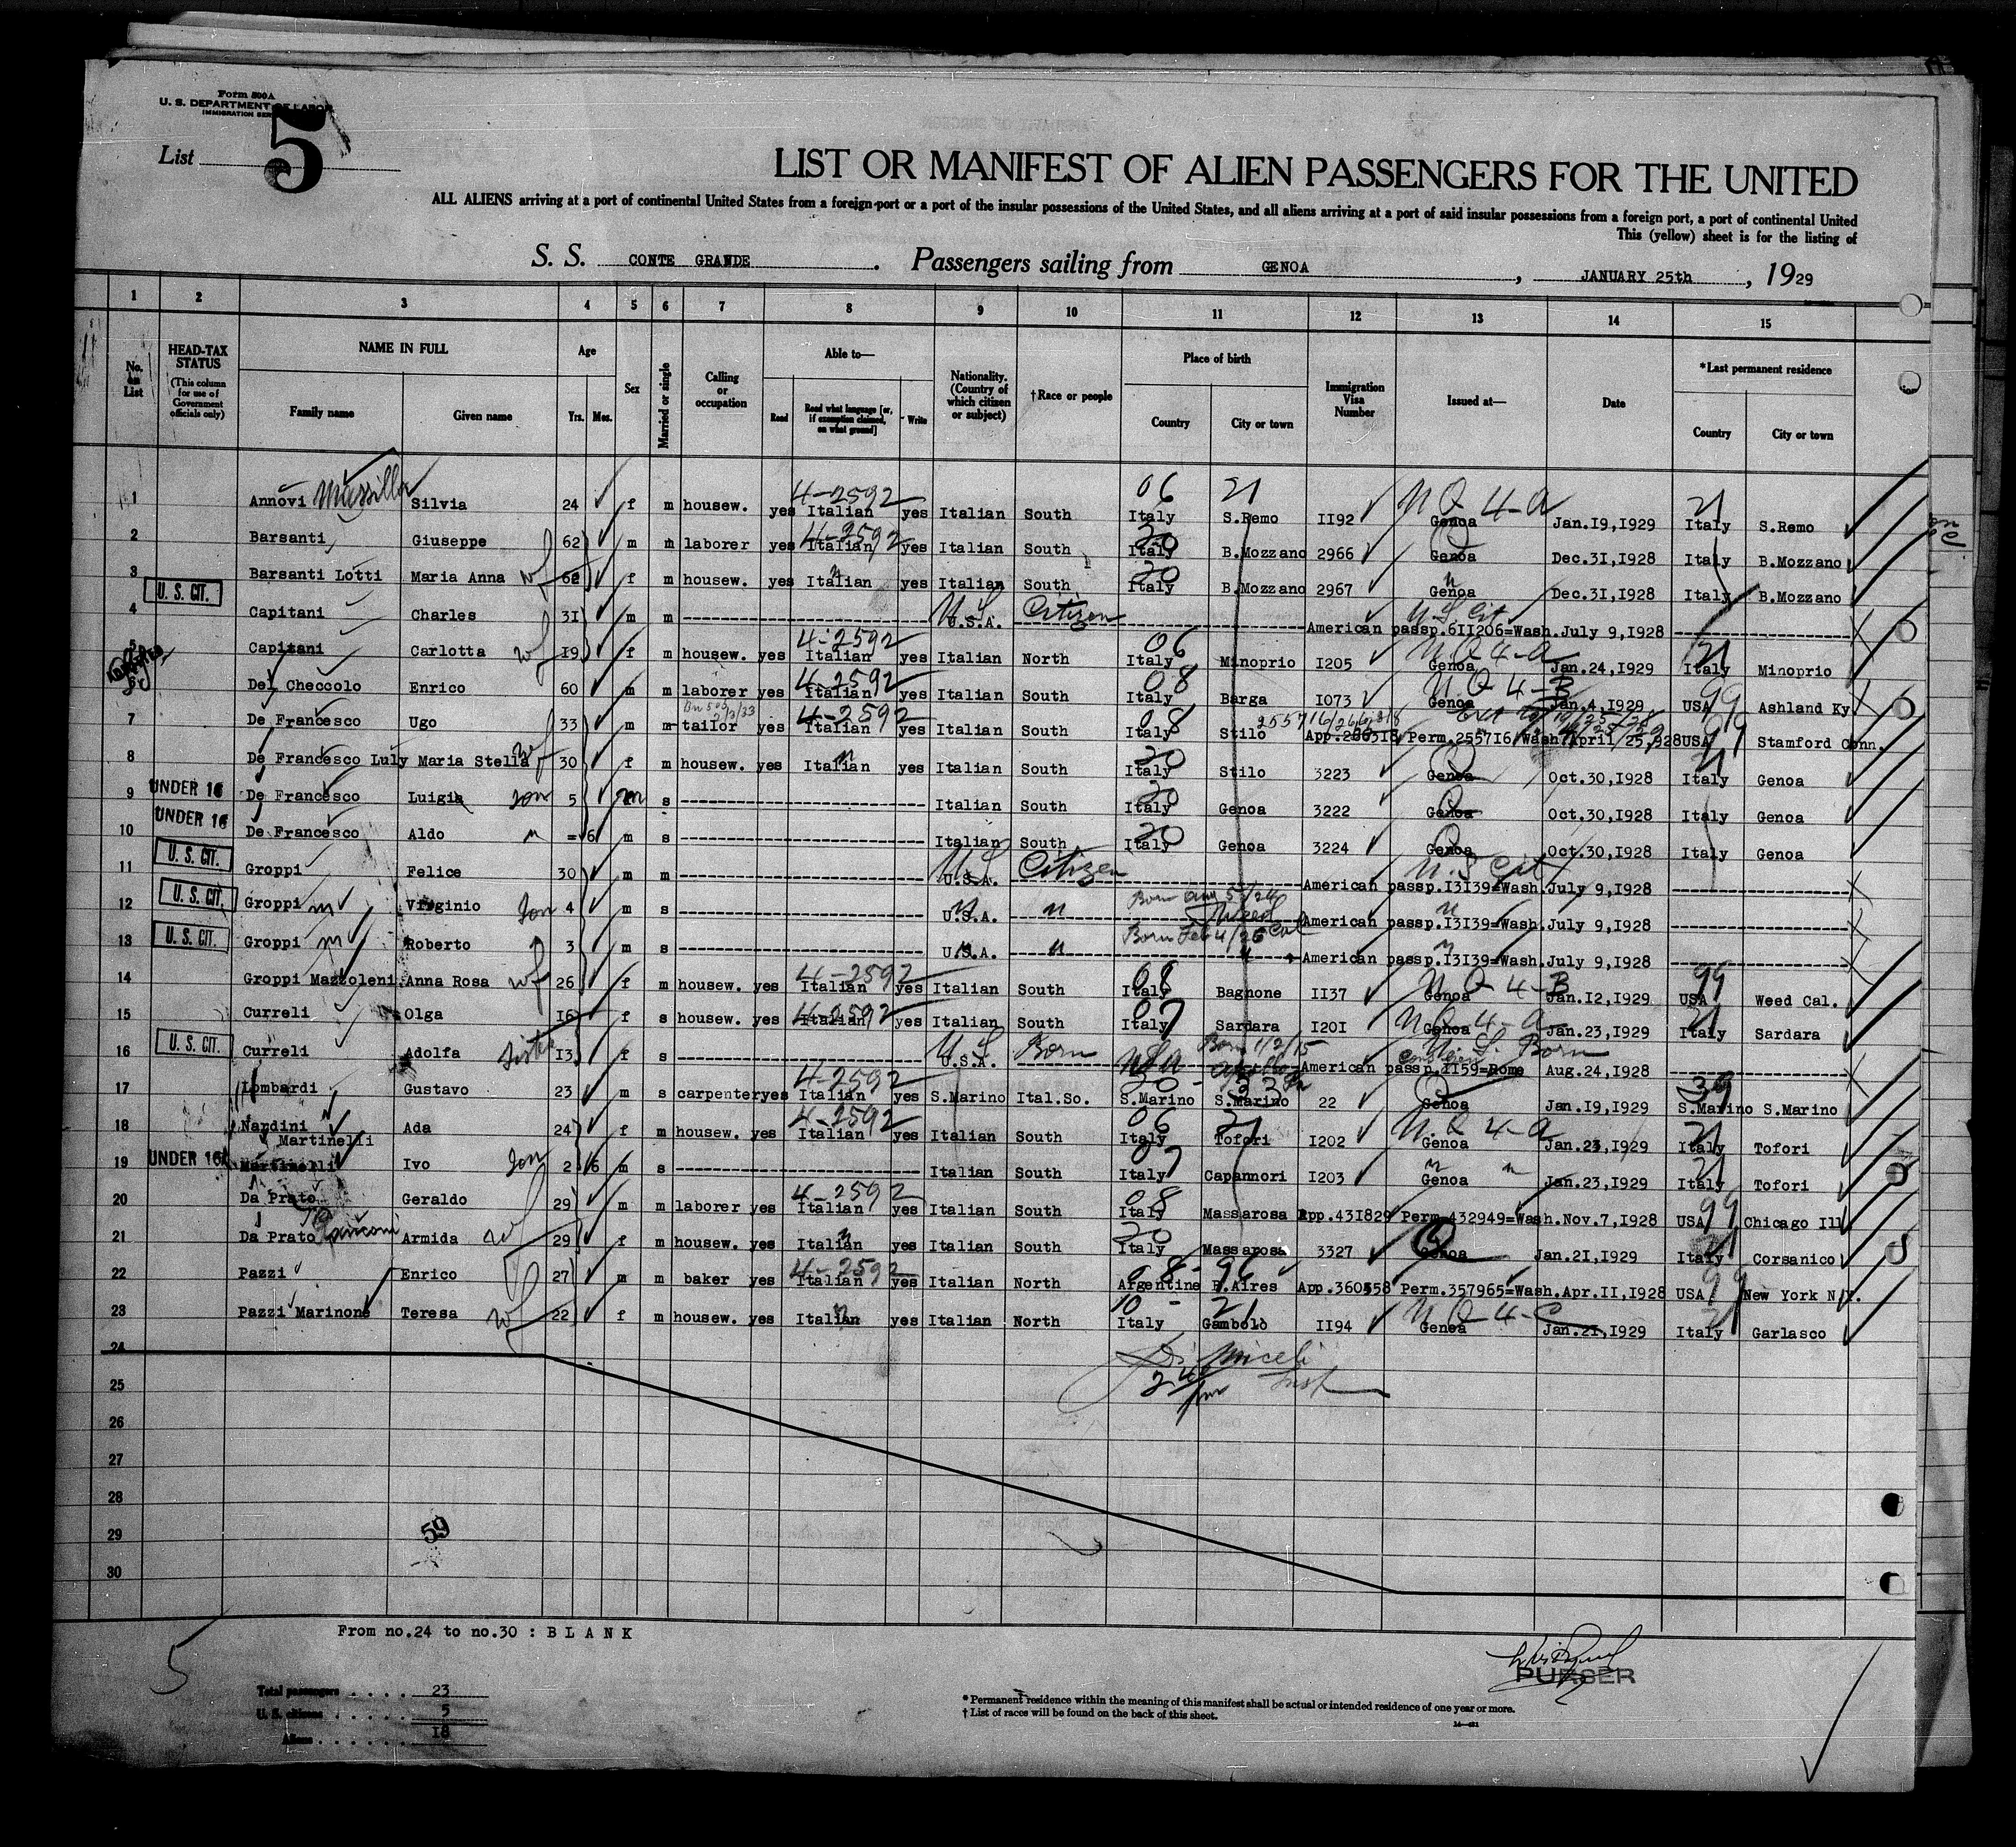 Form 500A
U. S. DEPARTMENT OF LABOR
IMMIGRATION SER
List 5
LIST OR MANIFEST OF ALIEN PASSENGERS FOR THE UNITED
ALL ALIENS arriving at a port of continental United States from a foreign port or a port of the insular possessions of the United States, and all aliens arriving at a port of said insular possessions from a foreign port, a port of continental United
This (yellow) sheet is for the listing of
S. S. CONTE GRANDE . Passengers sailing from GENOA , JANUARY 25th , 1929
1 2 3 4 5 6 7 8 9 10 11 12 13 14 15
No. on List HEAD-TAX STATUS (This column for use of Government officials only) NAME IN FULL Family name Given name Age Yrs. Mos. Sex Married or single Calling or occupation Able to— Read Read what language [or, if exemption claimed, on what ground] Write Nationality. (Country of which citizen or subject) †Race or people Place of birth Country City or town Immigration Visa Number Issued at— Date *Last permanent residence Country City or town
4-2592 06 21 N Q 4-a 21
1 Annovi Silvia 24 f m housew. yes Italian yes Italian South Italy S.Remo II92 Genoa Jan.I9,I929 Italy S.Remo
4-2592 20 Q
2 Barsanti Giuseppe 62 m m laborer yes Italian yes Italian South Italy B.Mozzano 2966 Genoa Dec.3I,I928 Italy B.Mozzano
3 Barsanti Lotti Maria Anna wf 62 f m housew. yes Italian yes Italian South Italy B.Mozzano 2967 Genoa Dec.3I,I928 Italy B.Mozzano
U. S. CIT.
4 Capitani Charles 3I m m U.S.A. U.S. Citizen American passp.6II206=Wash.July 9,I928 U.S. Cit
4-2592 06 N Q 4-a 21
5 Capitani Carlotta wf I9 f m housew. yes Italian yes Italian North Italy Minoprio I205 Genoa Jan.24,I929 Italy Minoprio
4-2592 08 N Q 4-B 99
Del Checcolo Enrico 60 m m laborer yes Italian yes Italian South Italy Barga I073 Genoa Jan.4,I929 USA Ashland Ky
4-2592 08 99
7 De Francesco Ugo 33 m m tailor yes Italian yes Italian South Italy Stilo App.266318 Perm.2557I6 Wash April,25,928 USA Stamford Conn.
8 De Francesco Luly Maria Stella wf 30 f m housew. yes Italian yes Italian South Italy Stilo 3223 Genoa Oct.30,I928 Italy Genoa
UNDER 16
9 De Francesco Luigia son 5 m s Italian South Italy Genoa 3222 Genoa Oct.30,I928 Italy Genoa
UNDER 16
10 De Francesco Aldo = 6 m s Italian South Italy Genoa 3224 Genoa Oct.30,I928 Italy Genoa
U. S. CIT.
11 Groppi Felice 30 m m U.S.A. U S Citizen American passp.I3I39=Wash.July 9,I928 U. S Cit
U. S. CIT. Born Aug 5/24 Weed
12 Groppi Virginio Son 4 m s U.S.A. American passp.I3I39=Wash.July 9,I928
U. S. CIT. Born Feb 4/26 Cal
13 Groppi Roberto 3 m s U.S.A. American passp.I3I39=Wash.July 9,I928
4-2592 08 N Q 4-B 99
14 Groppi Mazzoleni Anna Rosa wf 26 f m housew. yes Italian yes Italian South Italy Bagnone II37 Genoa Jan.I2,I929 USA Weed Cal.
4-2592 07 N Q 4-a 21
15 Curreli Olga I6 f s housew. yes Italian yes Italian South Italy Sardara I20I Genoa Jan.23,I929 Italy Sardara
U. S. CIT. U S Born Born 1/2/15 U. S. Born
16 Curreli Adolfa Sister I3 f s U.S.A. American passp.II59=Rome Aug.24,I928
4-2592 Q 39
17 Lombardi Gustavo 23 m s carpenter yes Italian yes S.Marino Ital.So. S.Marino S.Marino 22 Genoa Jan.I9,I929 S.Marino S.Marino
4-2592 06 21 N. Q 4-a 21
18 Nardini Martinelli Ada 24 f m housew. yes Italian yes Italian South Italy Tofori I202 Genoa Jan.23,I929 Italy Tofori
UNDER 16 07 21
19 Martinelli Ivo Son 2 6 m s Italian South Italy Capannori I203 Genoa Jan.23,I929 Italy Tofori
4-2592 08 99
20 Da Prato Geraldo 29 m m laborer yes Italian yes Italian South Italy Massarosa App.43I829 Perm.432949=Wash.Nov.7,I928 USA Chicago Ill
20 Q 21
21 Da Prato Armida wf 29 f m housew. yes Italian yes Italian South Italy Massarosa 3327 Genoa Jan.2I,I929 Italy Corsanico
4-2592 08-96 99
22 Pazzi Enrico 27 m m baker yes Italian yes Italian North Argentine B.Aires App.360558 Perm.357965=Wash.Apr.II,I928 USA New York N.Y.
10 - 21 N Q 4-C 21
23 Pazzi Marinone Teresa wf 22 f m housew. yes Italian yes Italian North Italy Gambolò II94 Genoa Jan.2I,I929 Italy Garlasco
24
25
26
27
28
29
30
59
From no.24 to no.30 : B L A N K
5
PURSER
Total passengers . . . . 23
U. S. citizens . . . . . 5
Aliens . . . . . . I8
* Permanent residence within the meaning of this manifest shall be actual or intended residence of one year or more.
† List of races will be found on the back of this sheet.